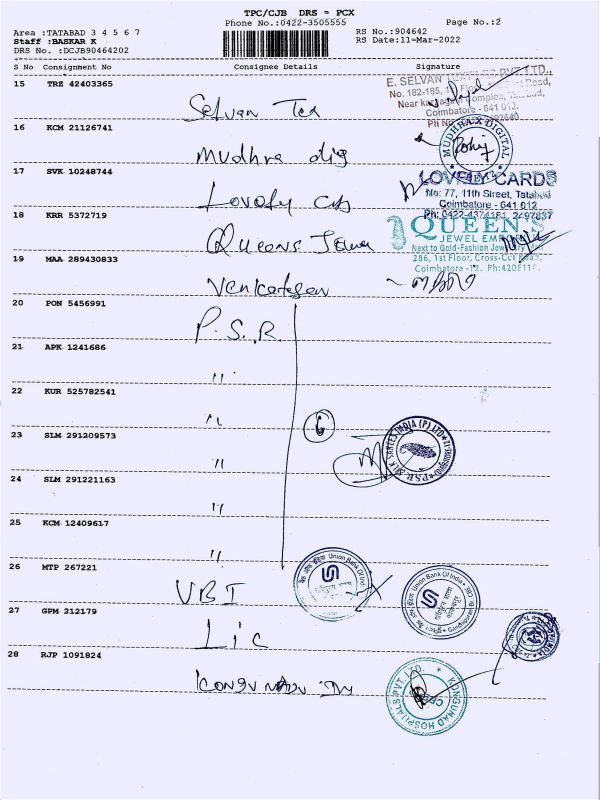 TPC/CJB DRS = PCX
Phone No.:0422-3505555
Page No.:2
Area :TATABAD 3 4 5 6 7
RS No.:904642
Staff :BASKAR K
RS Date:11-Mar-2022
DRS No. :DCJB90464202
S No Consignment No Consignee Details Signature
15 TRZ 42403365
Selvan Tex
E. SELVAN PVT. LTD.,
No. 182-185,
Near Complex,
Coimbatore - 641 012.
16 KCM 21126741
Mudhra dig
MUDHRA X DIGITAL
17 SVK 10248744
Lovely Cds
LOVELY CARDS
No: 77, 11th Street, Tatabad
Coimbatore - 641 012
18 KRR 5372719
Queens
QUEEN'S
JEWEL
Next to Gold-Fashion
286, 1st Floor, Cross-Cut Road,
Coimbatore -12.
19 MAA 289430833
Venkatesan
20 PON 5456991
P.S.R.
21 APK 1241686
"
22 KUR 525782541
"
6
23 SLM 291209573
"
P.S.R. SILK SAREES INDIA (P) LTD
24 SLM 291221163
"
25 KCM 12409617
"
26 MTP 267221
UBI
Union Bank Of India
Union Bank Of India
27 GPM 212179
Lic
28 RJP 1091824
KONGUNAD HOSPITALS PVT. LTD.